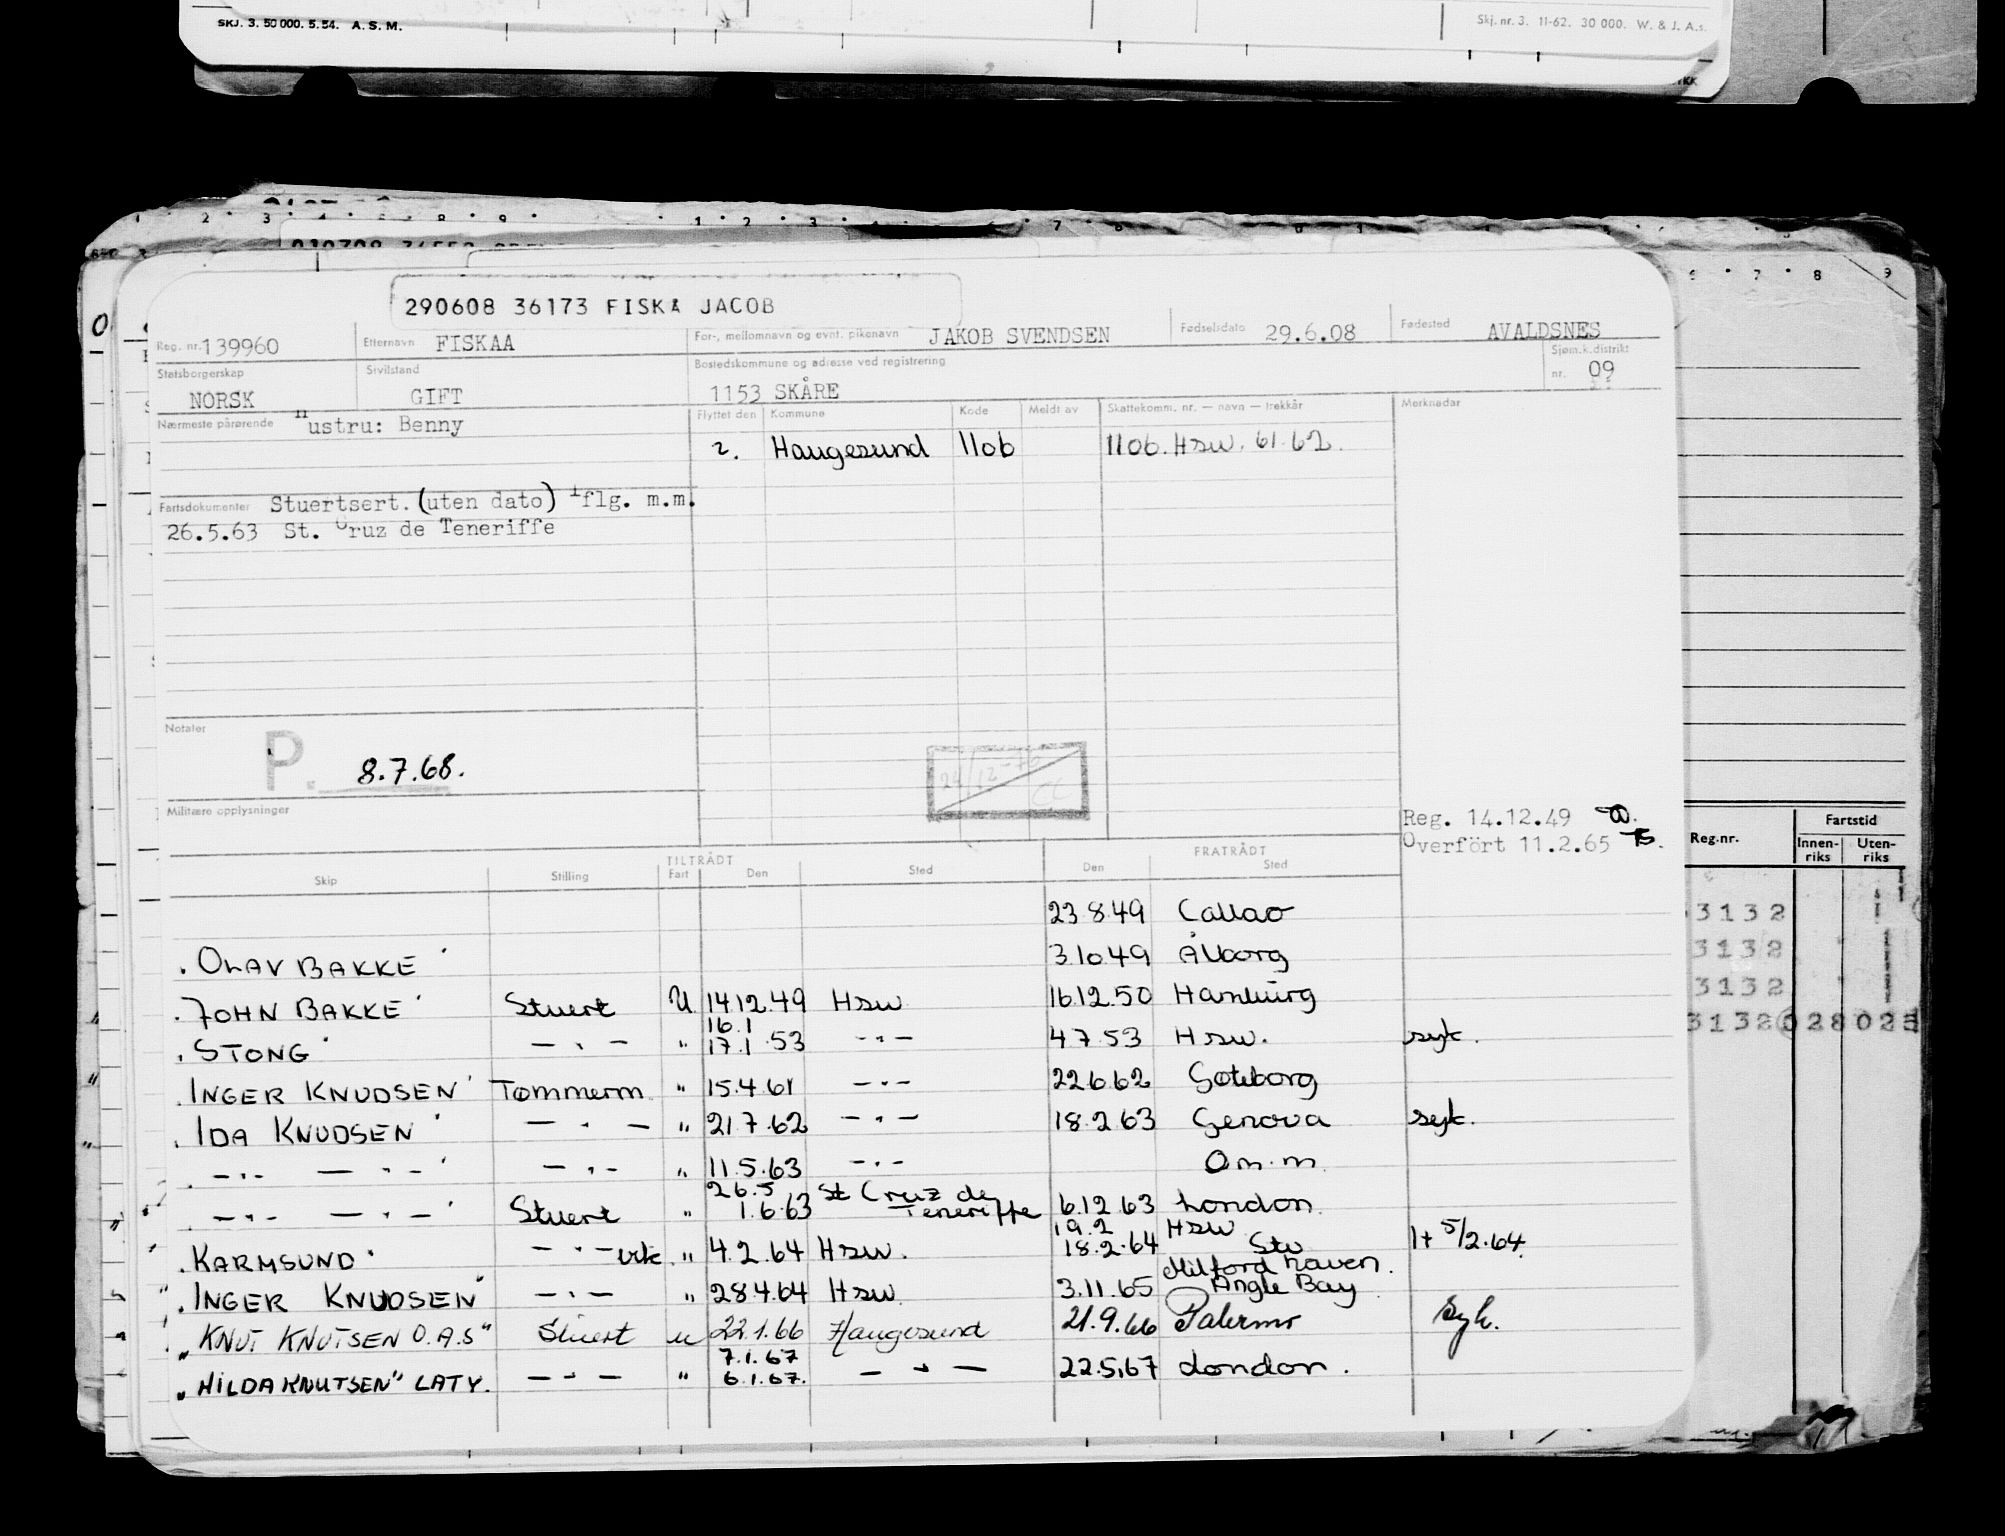 SKJ. 3. 50 000. 5. 54. A. S. M.
Skj. nr. 3. 11-62. 30 000. W. & J. A.s.
290608 36173 FISKA JACOB
Reg. nr. 139960 Etternavn FISKAA For-, mellomnavn og evnt. pikenavn JAKOB SVENDSEN Fødselsdato 29.6.08 Fødested AVALDSNES
Statsborgerskap Sivilstand Bostedskommune og adresse ved registrering Sjøm.k.distrikt
NORSK GIFT 1153 SKÅRE nr. 09
Nærmeste pårørende Hustru: Benny Flyttet den Kommune Kode Meldt av Skattekomm. nr. — navn — trekkår Merknader
2. Haugesund 1106 1106. Hsw. 61.62.
Fartsdokumenter Stuertsert. (uten dato) iflg. m.m.
26.5.63 St. Cruz de Teneriffe
Notater
P. 8.7.68.
Militære opplysninger
Reg. 14.12.49
Overfört 11.2.65
Reg.nr. Fartstid
Innen-riks Uten-riks
TILTRÅDT FRATRÅDT
Skip Stilling Fart Den Sted Den Sted
23 8.49 Callao
3132
. OLAV BAKKE ' 3.10.49 Ålborg
3132
. JOHN BAKKE ' Stuert U 14.12.49 Hsw 16.12.50 Hamburg
3132
16.1
. STONG ' — " — " 17.1.53 — " — 4.7.53 Hsw. syk.
3132 028 025
. INGER KNUDSEN ' Tømmerm. " 15.4.61 — " — 22.6.62 Gøteborg
. IDA KNUDSEN ' — " — " 21.7.62 — " — 18.2.63 Genova syk.
. — " — — " — ' — " — " 11.5.63 — " — Om.m.
. — " — — " — ' Stuert " 26.5 1.6.63 St Cruz de Teneriffe 6.12.63 London.
19.2 Hsw
. KARMSUND ' — " — vik. " 4.2.64 Hsw. 18.2.64 Stv 1t 5/2.64.
. INGER KNUDSEN ' — " — " 28.4.64 Hsw. 3.11.65 Milford haven. Angle Bay
"KNUT KNUTSEN O.A.S" Stuert u 22.1.66 Haugesund 21.9.66 Palermo Syk.
7.1.67
"HILDA KNUTSEN" LATY. — " — " 6.1.67. — " — 22.5.67 London.